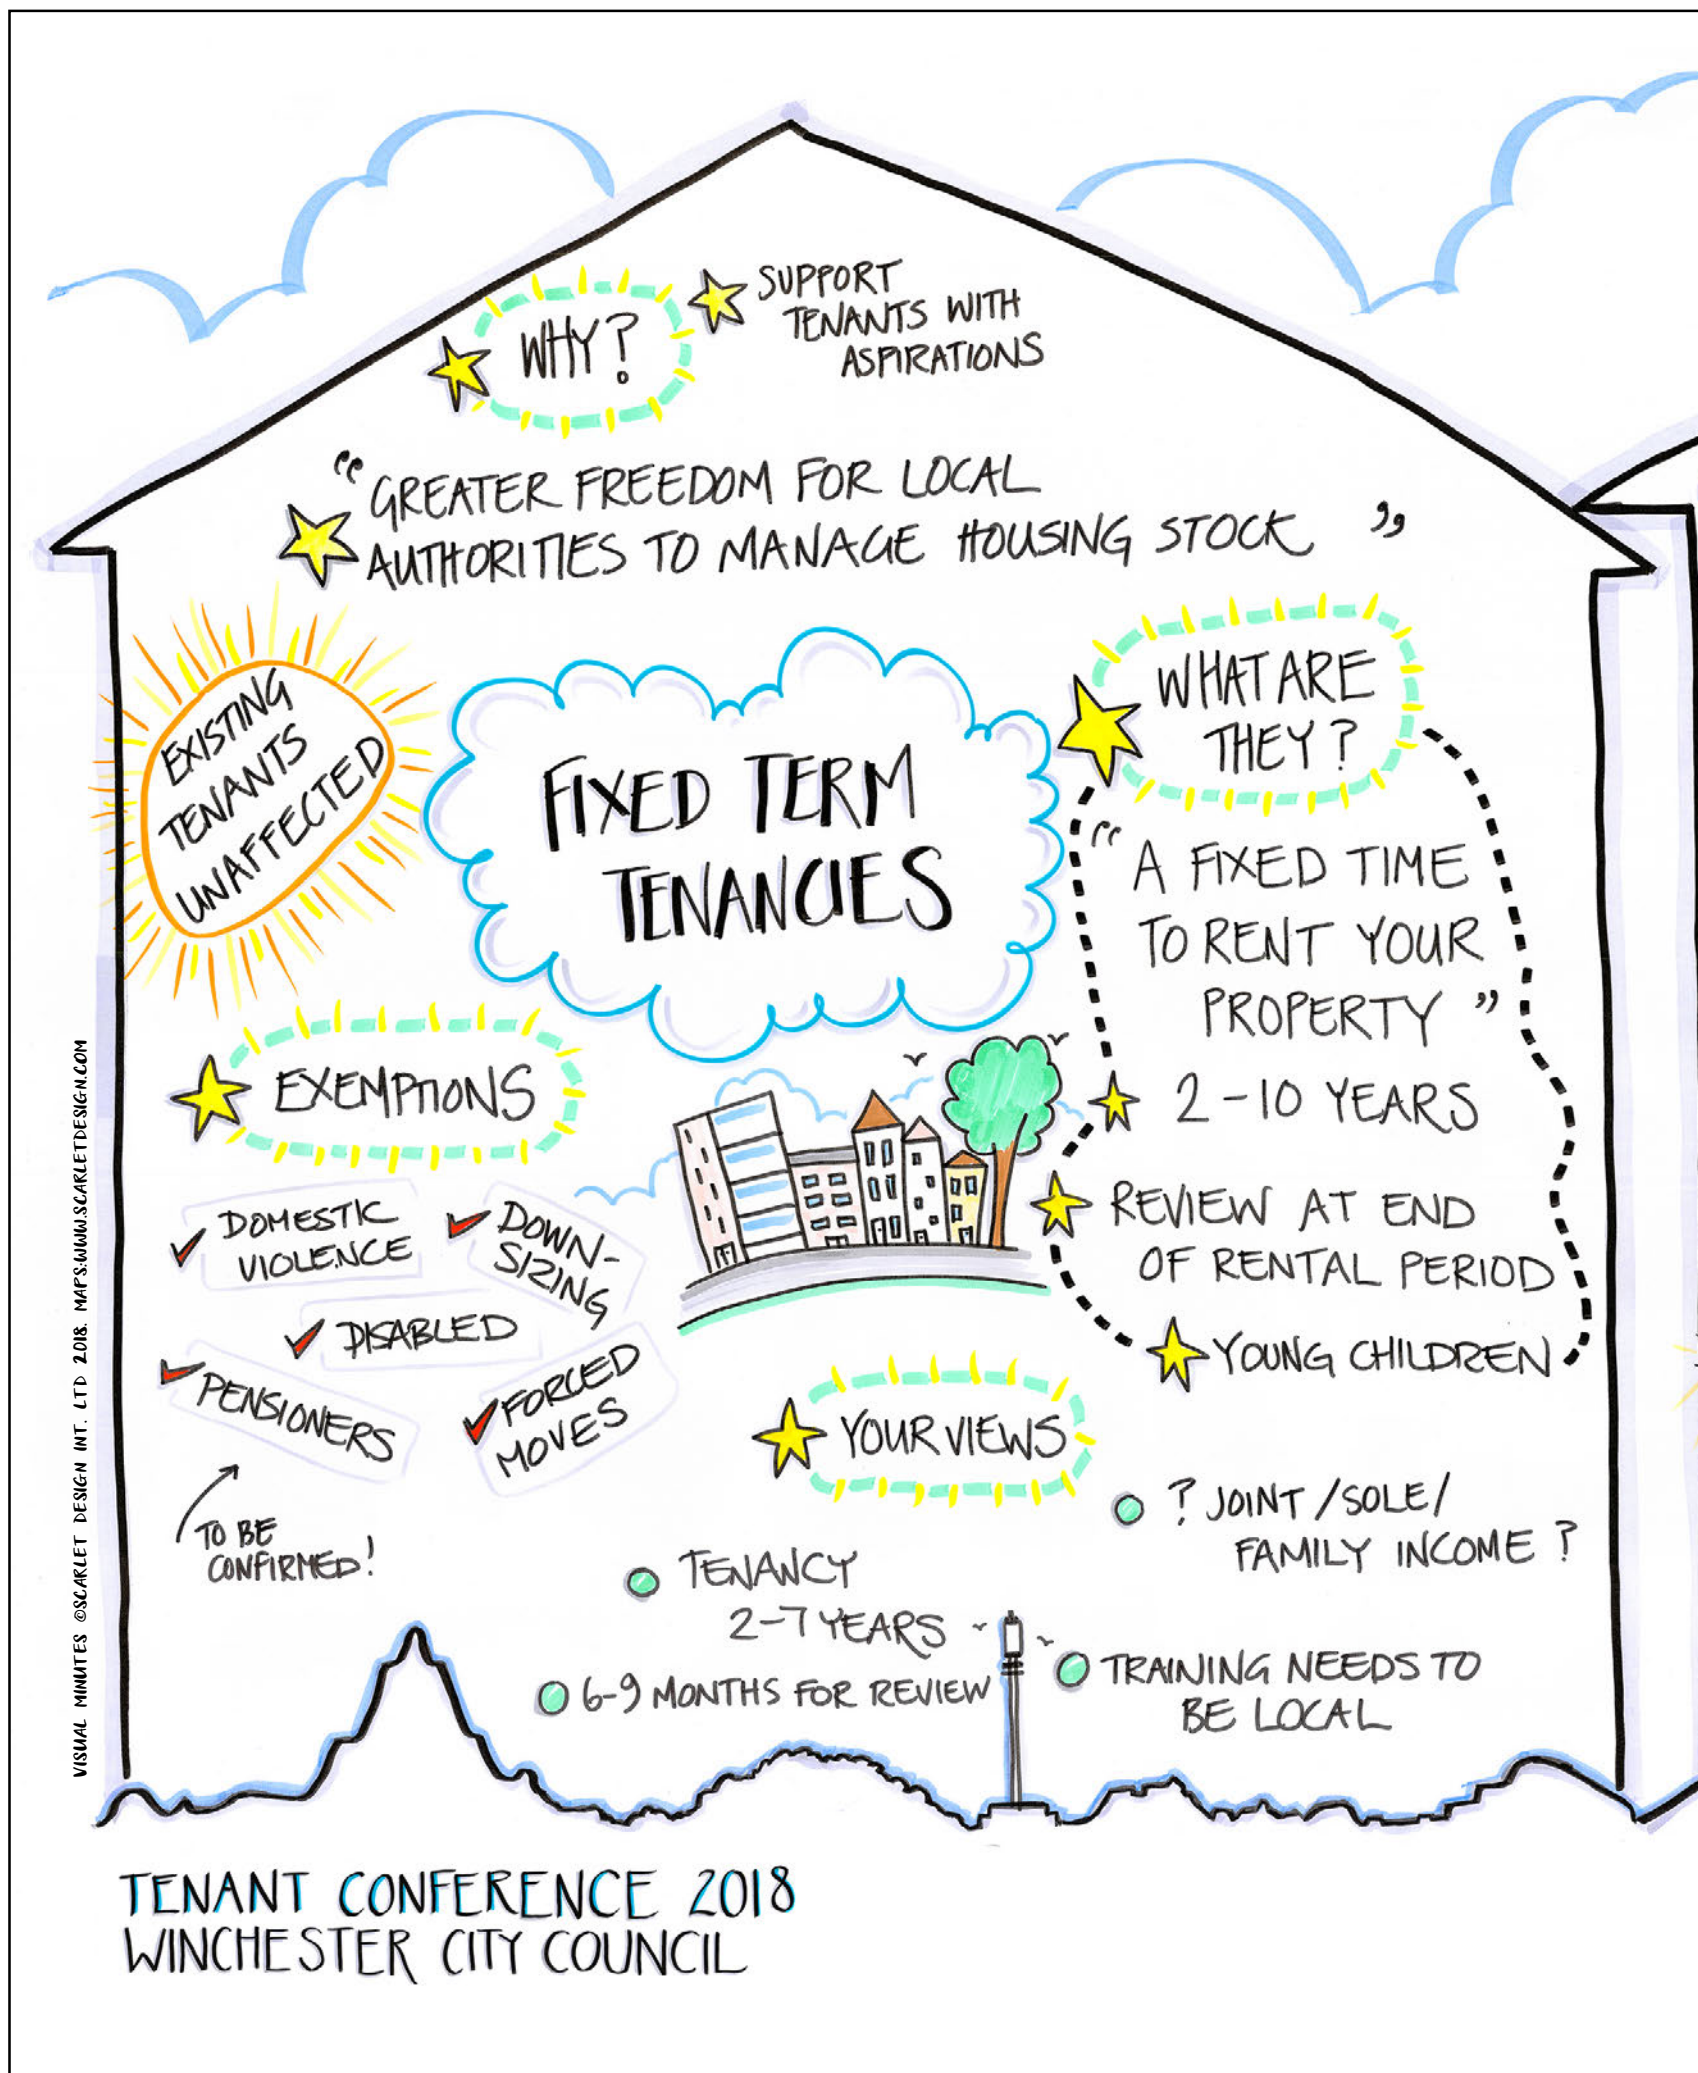 WHY?
SUPPORT
TENANTS WITH
ASPIRATIONS
“GREATER FREEDOM FOR LOCAL
AUTHORITIES TO MANAGE HOUSING STOCK”
EXISTING
TENANTS
UNAFFECTED
FIXED TERM
TENANCIES
WHAT ARE
THEY?
“A FIXED TIME
TO RENT YOUR
PROPERTY”
2-10 YEARS
REVIEW AT END
OF RENTAL PERIOD
YOUNG CHILDREN
EXEMPTIONS
DOMESTIC
VIOLENCE
DOWN-
SIZING
DISABLED
PENSIONERS
FORCED
MOVES
TO BE
CONFIRMED!
YOUR VIEWS
? JOINT/SOLE/
FAMILY INCOME?
TENANCY
2-7 YEARS
6-9 MONTHS FOR REVIEW
TRAINING NEEDS TO
BE LOCAL
VISUAL MINUTES ©SCARLET DESIGN INT. LTD 2018. MAPS:WWW.SCARLETDESIGN.COM
TENANT CONFERENCE 2018
WINCHESTER CITY COUNCIL